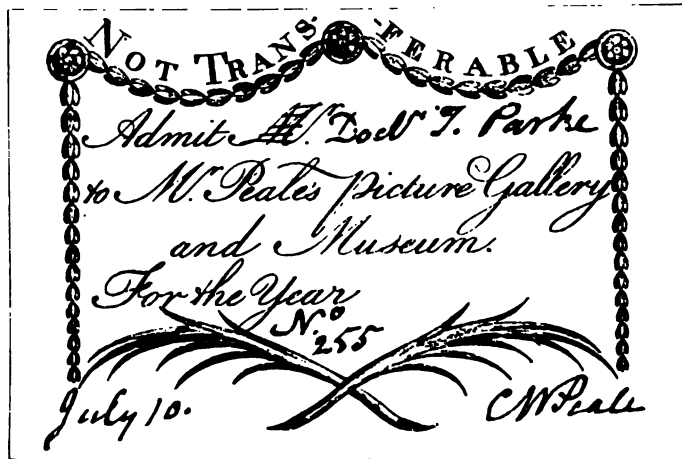 NOT TRANS-FERABLE
Admit Mr. Docr T. Parke
to Mr. Peale's picture Gallery
and Museum.
For the Year
No.
255
July 10. CWPeale